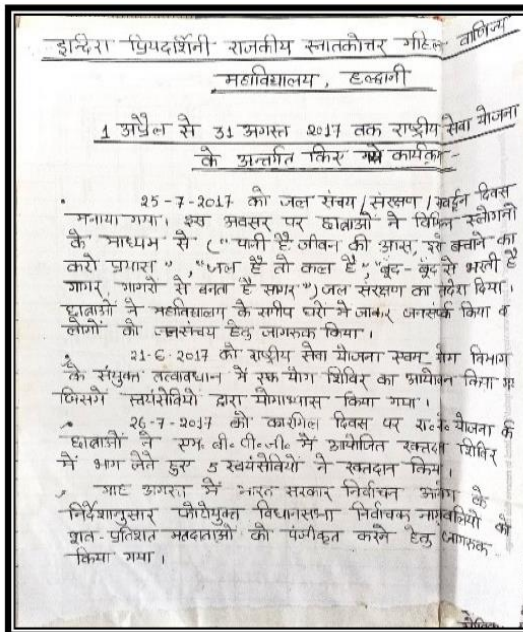 इन्दिरा प्रियदर्शिनी राजकीय स्नातकोत्तर महिला वाणिज्य
महाविद्यालय, हल्द्वानी
1 अप्रैल से 31 अगस्त 2017 तक राष्ट्रीय सेवा योजना
के अन्तर्गत किए गये कार्यक्रम -
25-7-2017 को जल संचय / संरक्षण / संवर्द्धन दिवस
मनाया गया। इस अवसर पर छात्राओं ने विभिन्न स्लोगनों
के माध्यम से ("पानी है जीवन की आस, इसे बचाने का
करो प्रयास", "जल है तो कल है", "बूंद-बूंद से भरती है
गागर, गागरों से बनता है सागर") जल संरक्षण का संदेश दिया।
छात्राओं ने महाविद्यालय के समीप घरों में जाकर जनसंपर्क किया व
लोगों को जलसंचय हेतु जागरूक किया।
21-6-2017 को राष्ट्रीय सेवा योजना एवम् योग विभाग
के संयुक्त तत्वावधान में एक योग शिविर का आयोजन किया गया
जिसमें स्वयंसेवियों द्वारा योगाभ्यास किया गया।
26-7-2017 को कारगिल दिवस पर रा.से. योजना की
छात्राओं ने एम. बी. पी. जी. में आयोजित रक्तदान शिविर
में भाग लेते हुए 5 स्वयंसेवियों ने रक्तदान किया।
माह अगस्त में भारत सरकार निर्वाचन आयोग के
निर्देशानुसार फोटोयुक्त विधानसभा निर्वाचक नामावलियों को
शत-प्रतिशत मतदाताओं को पंजीकृत करने हेतु जागरूक
किया गया।